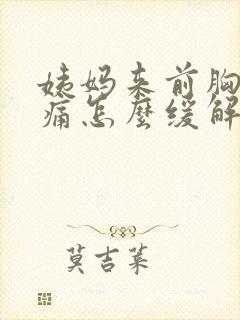 姨妈来前胸
痛怎麼缓解
莫吉莱